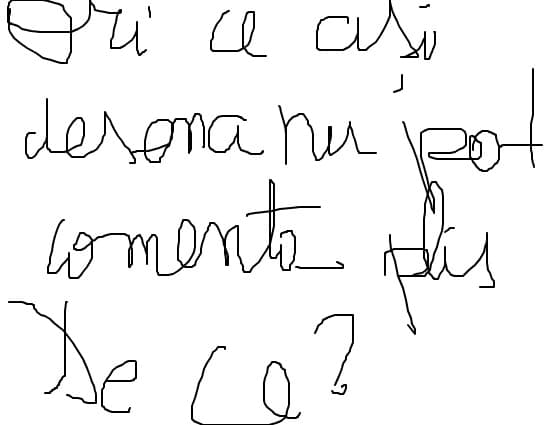 Ori ce ași
desena nu pot
comenta plus
De ce?